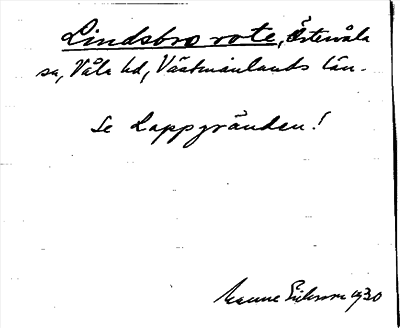 Lindsbro rote, Östervåla
sn, Våla hd, Västmanlands län.
Se Lappgränden!
Manne Eriksson 1930